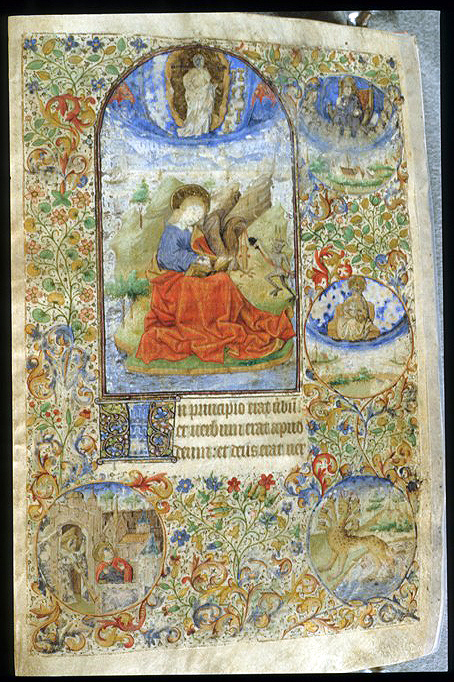 In principio erat v̄bū.
et verbum erat apud
deum: et deus erat ver